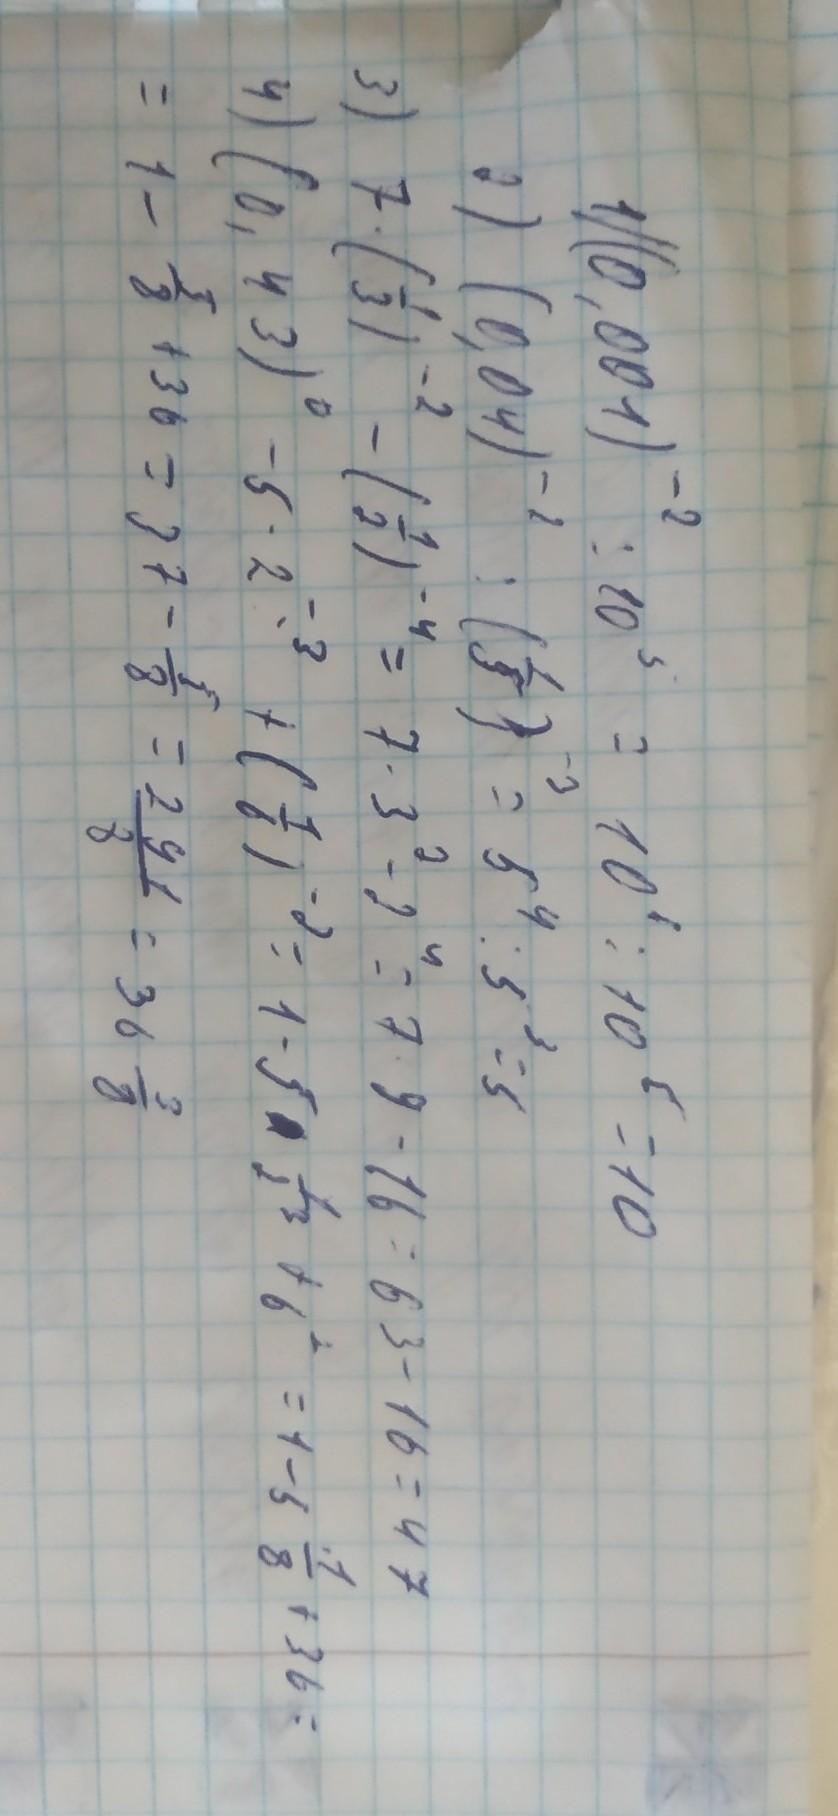 1) (0,001)^-2 : 10^5 = 10^6 : 10^5 = 10
2) (0,04)^-2 : (1/5)^-3 = 5^4 : 5^3 = 5
3) 7 · (1/3)^-2 - (1/2)^-4 = 7 · 3^2 - 2^4 = 7 · 9 - 16 = 63 - 16 = 47
4) (0,43)^0 - 5 · 2^-3 + (1/6)^-2 = 1 - 5 · 1/2^3 + 6^2 = 1 - 5 · 1/8 + 36 =
= 1 - 5/8 + 36 = 37 - 5/8 = 291/8 = 36 3/8